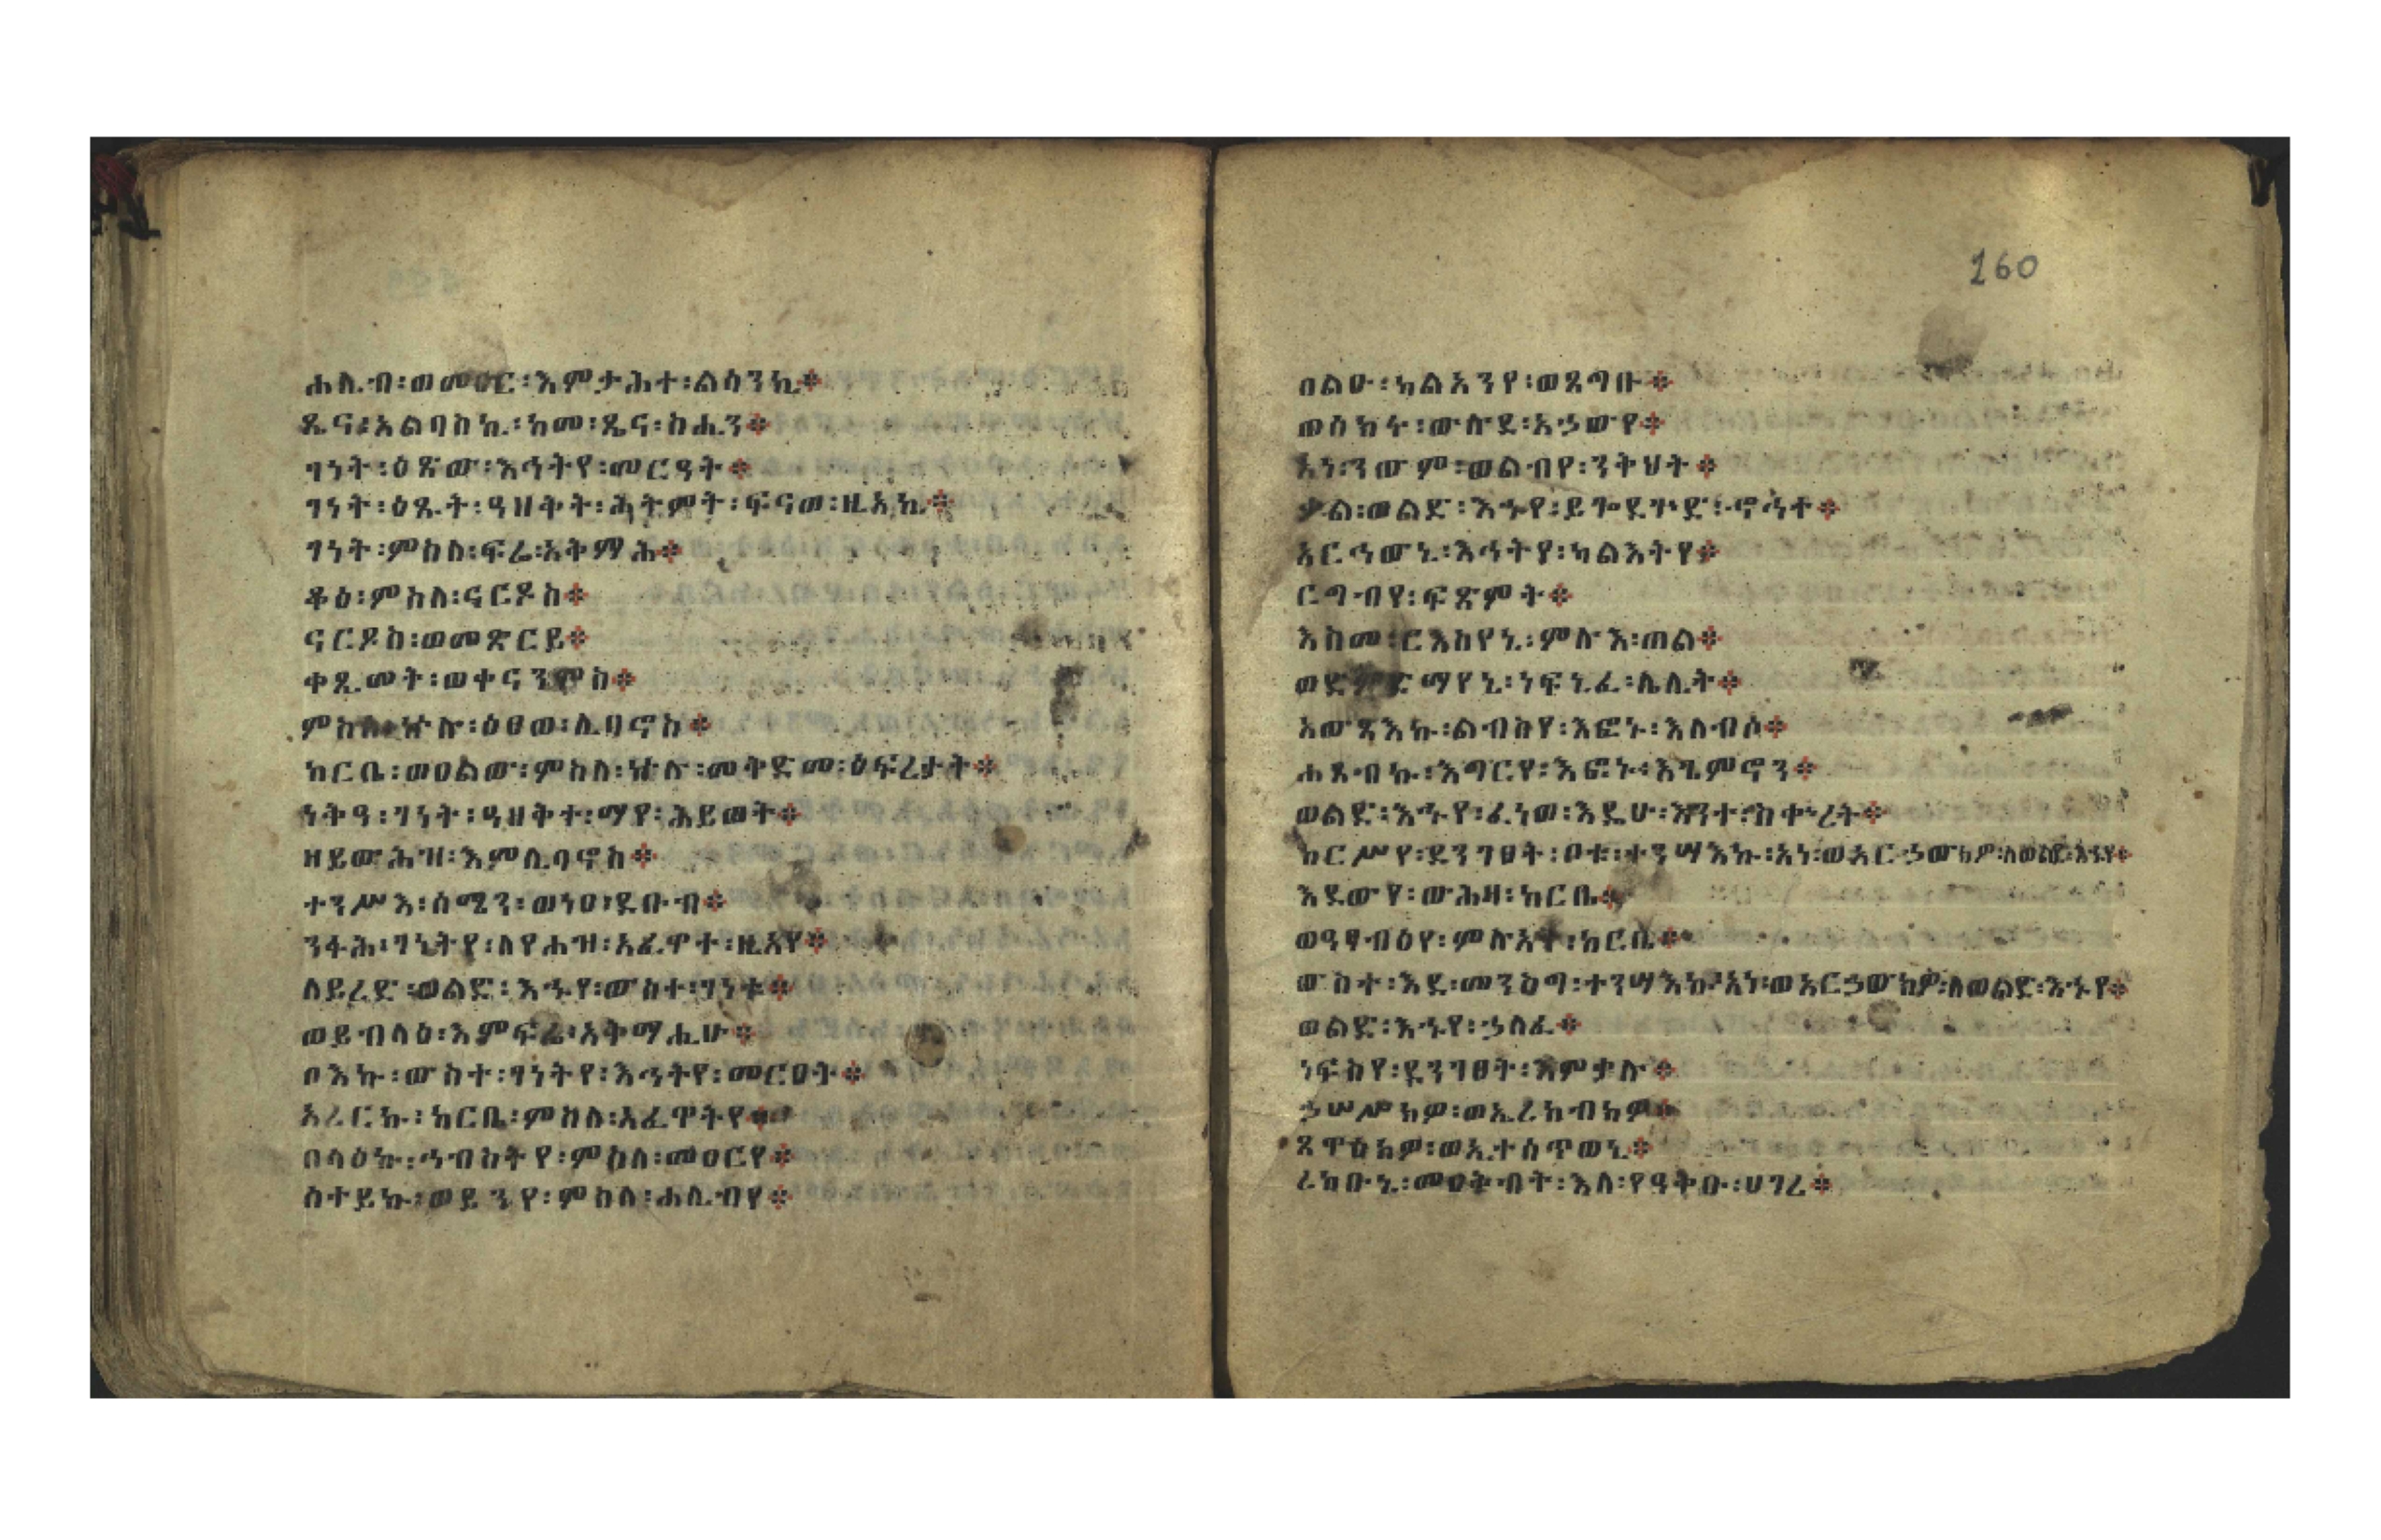 ሐሊብ፡ወመዐር፡እምታሕተ፡ልሳንኪ፨
ጼና፡አልባስኪ፡ከመ፡ጼና፡ስሒን፨
ገነት፡ዕጽው፡እኅትየ፡መርዓት፨
ገነት፡ዕጹት፡ዓዘቅት፡ሕትምት፡ፍናወ፡ዚአኪ፨
ገነት፡ምስለ፡ፍሬ፡አቅማሕ፨
ቆዕ፡ምስለ፡ናርዶስ፨
ናርዶስ፡ወመጽርይ፨
ቀጺመት፡ወቀናንሞስ፨
ምስለ፡ኵሉ፡ዕፀወ፡ሊባኖስ፨
ከርቤ፡ወዐልው፡ምስለ፡ኵሉ፡መቅድመ፡ዕፍረታት፨
ነቅዓ፡ገነት፡ዓዘቅተ፡ማየ፡ሕይወት፨
ዘይውሕዝ፡እምሊባኖስ፨
ተንሥእ፡ሰሜን፡ወነዐ፡ደቡብ፨
ንፋሕ፡ገኔትየ፡ለየሐዝ፡አፈዋተ፡ዚአየ፨
ለይረድ፡ወልድ፡እኁየ፡ውስተ፡ገነቱ፨
ወይብላዕ፡እምፍሬ፡አቅማሒሁ፨
ቦእኩ፡ውስተ፡ገነትየ፡እኅትየ፡መርዐት፨
አረርኩ፡ከርቤ፡ምስለ፡አፈዋትየ፨
በላዕኩ፡ኅብስትየ፡ምስለ፡መዐርየ፨
ሰተይኩ፡ወይንየ፡ምስለ፡ሐሊብየ፨
160
በልሁ፡ካልአንየ፡ወጸግቡ፨
ወስከሩ፡ውሉደ፡አኃውየ፨
አነ፡ንውም፡ወልብየ፡ንቅህት፨
ቃል፡ወልድ፡እኁየ፡ይጐደጕድ፡ኖኅተ፨
አርኅወኒ፡እኅትየ፡ካልእትየ፨
ርግብየ፡ፍጽምት፨
እስመ፡ርእስየኒ፡ምሉእ፡ጠል፨
ወድምድማየኒ፡ነፍኒፈ፡ሌሊት፨
አውጻእኩ፡ልብስየ፡እፎኑ፡እለብሶ፨
ሐጸብኩ፡እግርየ፡እፎኑ፡እጌምኖን፨
ወልድ፡እኁየ፡ፈነወ፡እዴሁ፡እንተ፡ስቀኍረት፨
ከርሥየ፡ደንገፀት፡ቦቱ፡ተንሣእኩ፡አነ፡ወአርኃውክዎ፡ለወልድ፡እኁየ፨
እደውየ፡ውሕዛ፡ከርቤ፨
ወዓፃብዕየ፡ምሉአተ፡ከርቤ፨
ውስተ፡እደ፡መንስግ፡ተንሣእኩ፡አነ፡ወአርኃውክዎ፡ለወልድ፡እኁየ፨
ወልድ፡እኁየ፡ኃለፈ፨
ነፍስየ፡ደንገፀት፡እምቃሉ፨
ኃሠሥክዎ፡ወኢረከብክዎ፨
ጸዋዕክዎ፡ወኢተሰጥወኒ፨
ረከቡኒ፡መዐቅብት፡እለ፡የዓቅቡ፡ሀገረ፨